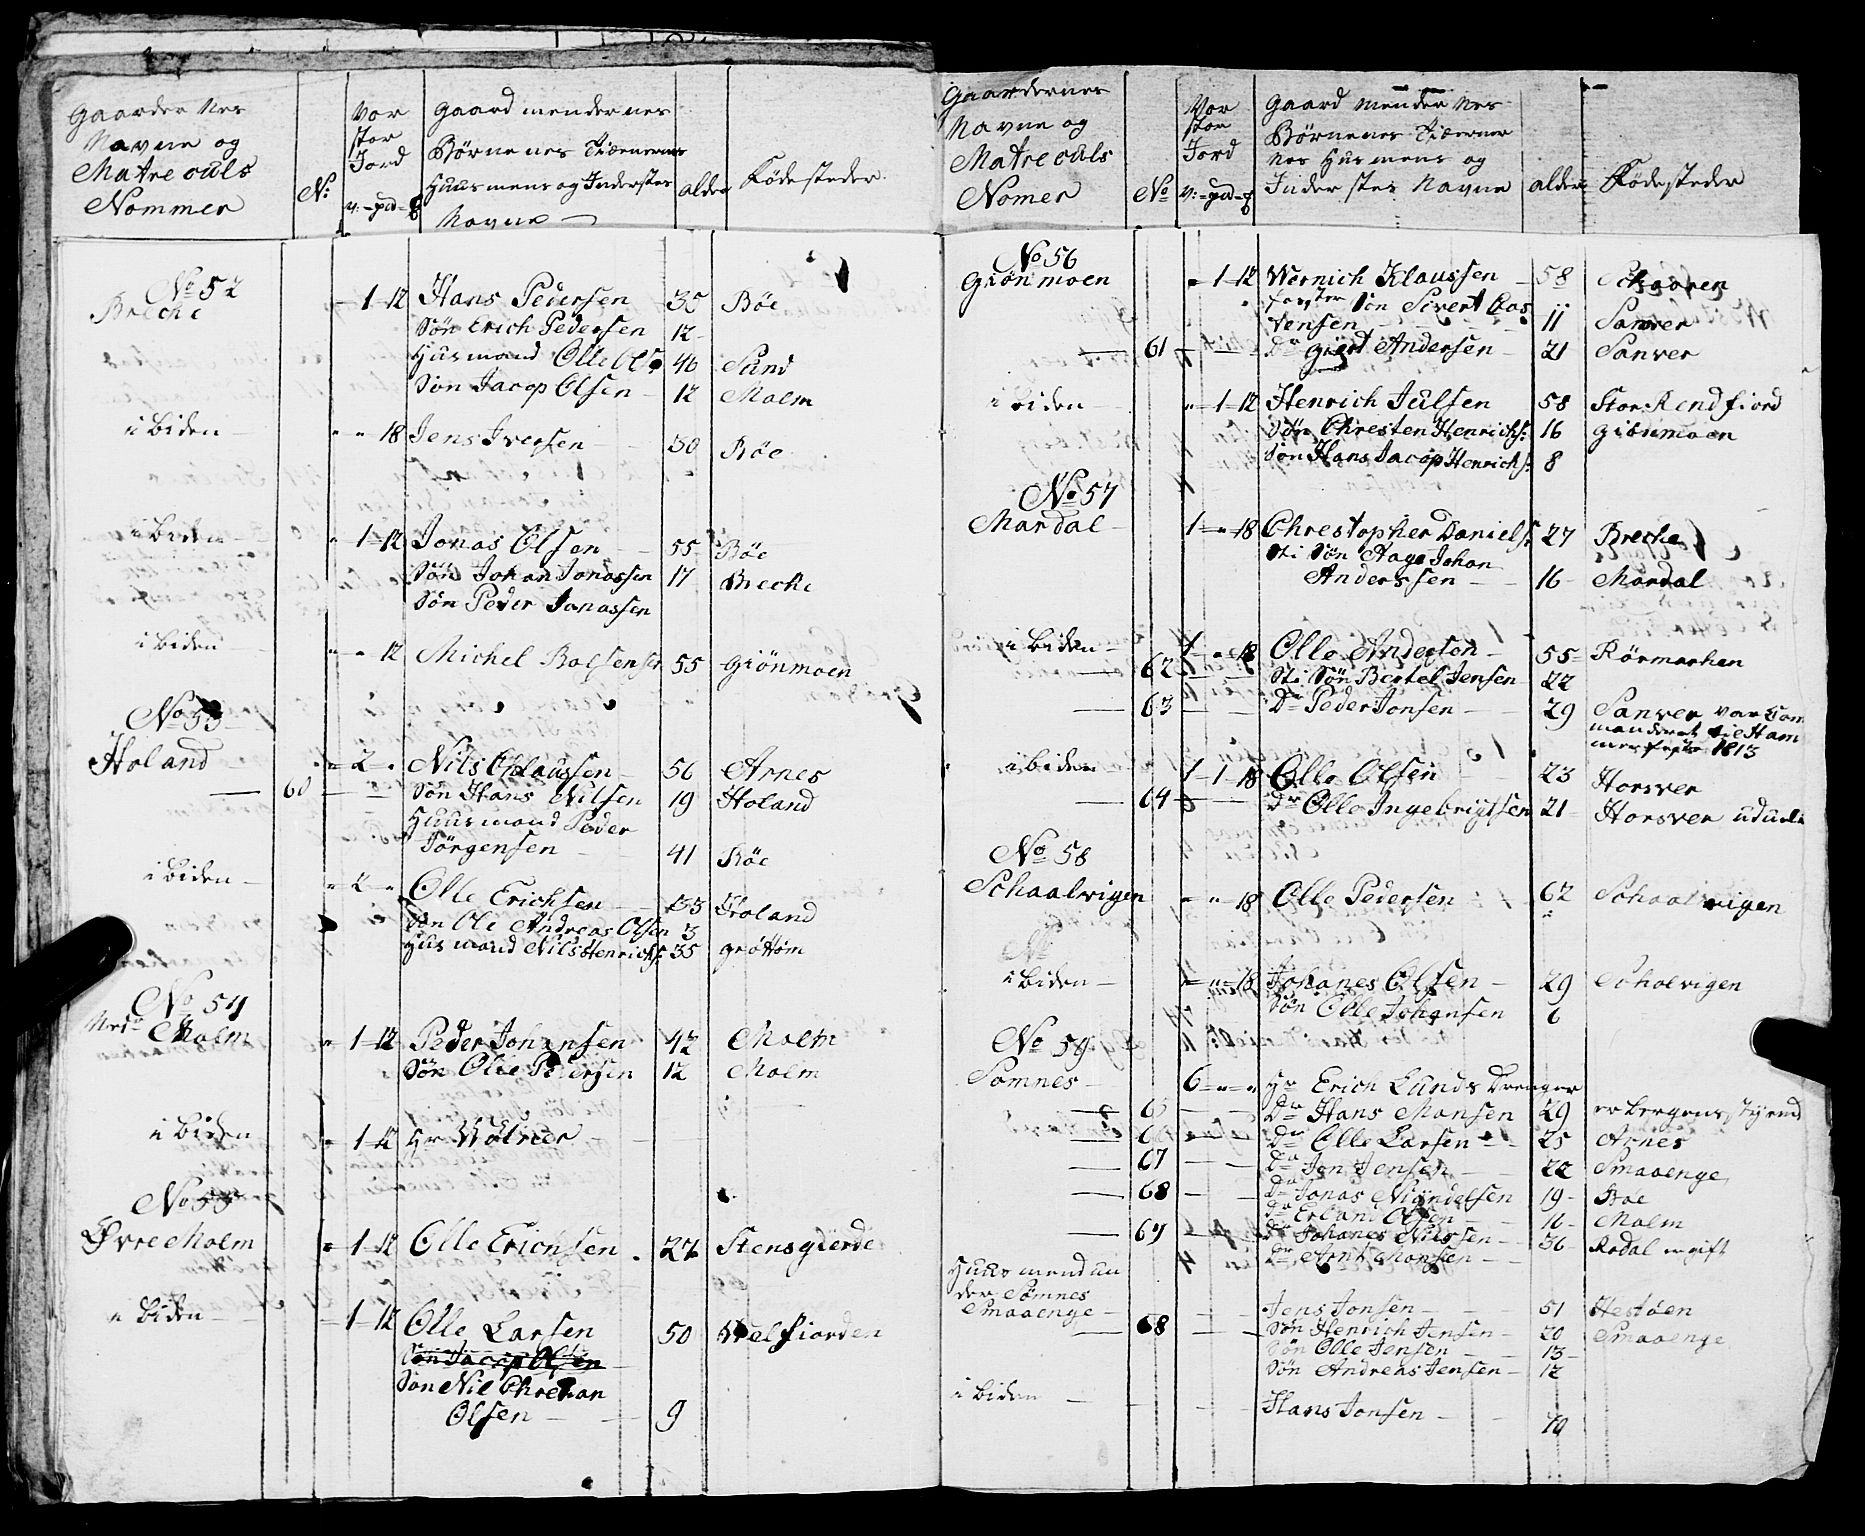 Gaarder Nes
Navne og
Matreculs
Nommer
No
Vor
stor
Jord
v:-pd-
Gaard mendernes
Børnenes Tiæenernes
Huusmens og Inderstes
Navne
alder
Fødesteder
No 52
Breche
- 1-12 Hans Pedersen 35 Bøe
Søn Erich Pedersen 12
Husmand Olle Ols: 46 Sund
Søn Jacop Olsen - 12 Moelm
i biden - " " 18 Jens Iversen 30 Bøe
i biden - " 1-12 Jonas Olsen - 55 Bøe
Søn Johan Jonassen 17 Breche
Søn Peder Jonassen
i biden " - 12 Michel Boelsensen 55 Giönmoen
No 53
Holand " 2 " Nils Claussen - 56 Arnes
- 60 - Søn Hans Nilsen 19 Holand
Huusmand Peder
Jörgensen - 41 Bøe
i biden - " 2 - " Olle Erichsen - 33 Holand
Søn Ole Andreas Olsen 3
Husmand Nils Henrichs: 35 gröttöm
No 54
Moelm " 1-12 Peder Johansen 42 Moelm
Søn Olle Pedersen 12 Moelm
i biden - " 1-12 Hr Wölner
No 55
Øvre Moelm " 1-12 Olle Erichsen 27 Stensgierde
i biden - - 1-12 Olle Larsen 50 Velfiorden
Søn Jacop Olsen
Søn Nil Chrestian
Olsen - 9
Gaardernes
Navne og
Matreculs
Nomer
No
Vor
stor
Jord
v:-pd-
Gaard mender Nes
Børnenes Tiæerner
nes Husmens og
Inderstes Navne
alder
Fødesteder
No 56
Giönmoen " 1-12 Wernich Klaussen - 58 Schaaren
Foster Søn Sivert Cas
tensen - 11 Sanver
- 61 - Do Giert Andersen - 21 Sanver
i biden - " 1-12 Henrich Julsen 58 Stor Rendfiord
Søn Chresten Henrichs: 16 Giönmoen
Søn Hans Jacop Henrichs: 8
No 57
Mardal - 1 - " 18 Chrestopher Daniels: 27 Breche
Sti Søn Aage Johan
Anderssen - 16 - Mardal
i biden - 1 - " 18 Olle Anderson - 55 - Rörmarken
- 62 - Sti Søn Bertel Jensen 22
- 63 - Do Peder Jonsen - 29 Sanver var Com
manderet til Ham
merfest 1813
i biden - 1-1-18 Olle Olsen - 23 Horsver
- 64 - Do Olle Ingebrigtsen 21 - Horsver
No 58
Schaalvigen " " 18 Olle Pedersen 62 Schaalvigen
No
i biden - " 18 Johanes Olsen - 29 Scholvigen
Søn Olle Johansen 6
No 59
Somnes - 6 - " - " Hr Erich Lunds Drenger
- 65 - Do Hans Monsen 29
- 66 - Do Olle Larsen - 25 Arnes
- 67 - Do Jon Jensen - 22 Smaaenge
- 68 - Do Jonas Nigridelsen 19 - Boe
Do Erland Olsen - 16 - Moelm
- 69 - Do Johanes Nilssen - 36 - Rodal gift
Do Arnt Monsen -
Huusmend un
der Sömnes
Smaaenge - Jens Jonsen - 51 Hestöen
- 68 - Søn Henrich Jensen - 20 Smaaenge
Søn Olle Jensen - 13 -
Søn Andreas Jensen - 12
i biden - Hans Jonsen - 70